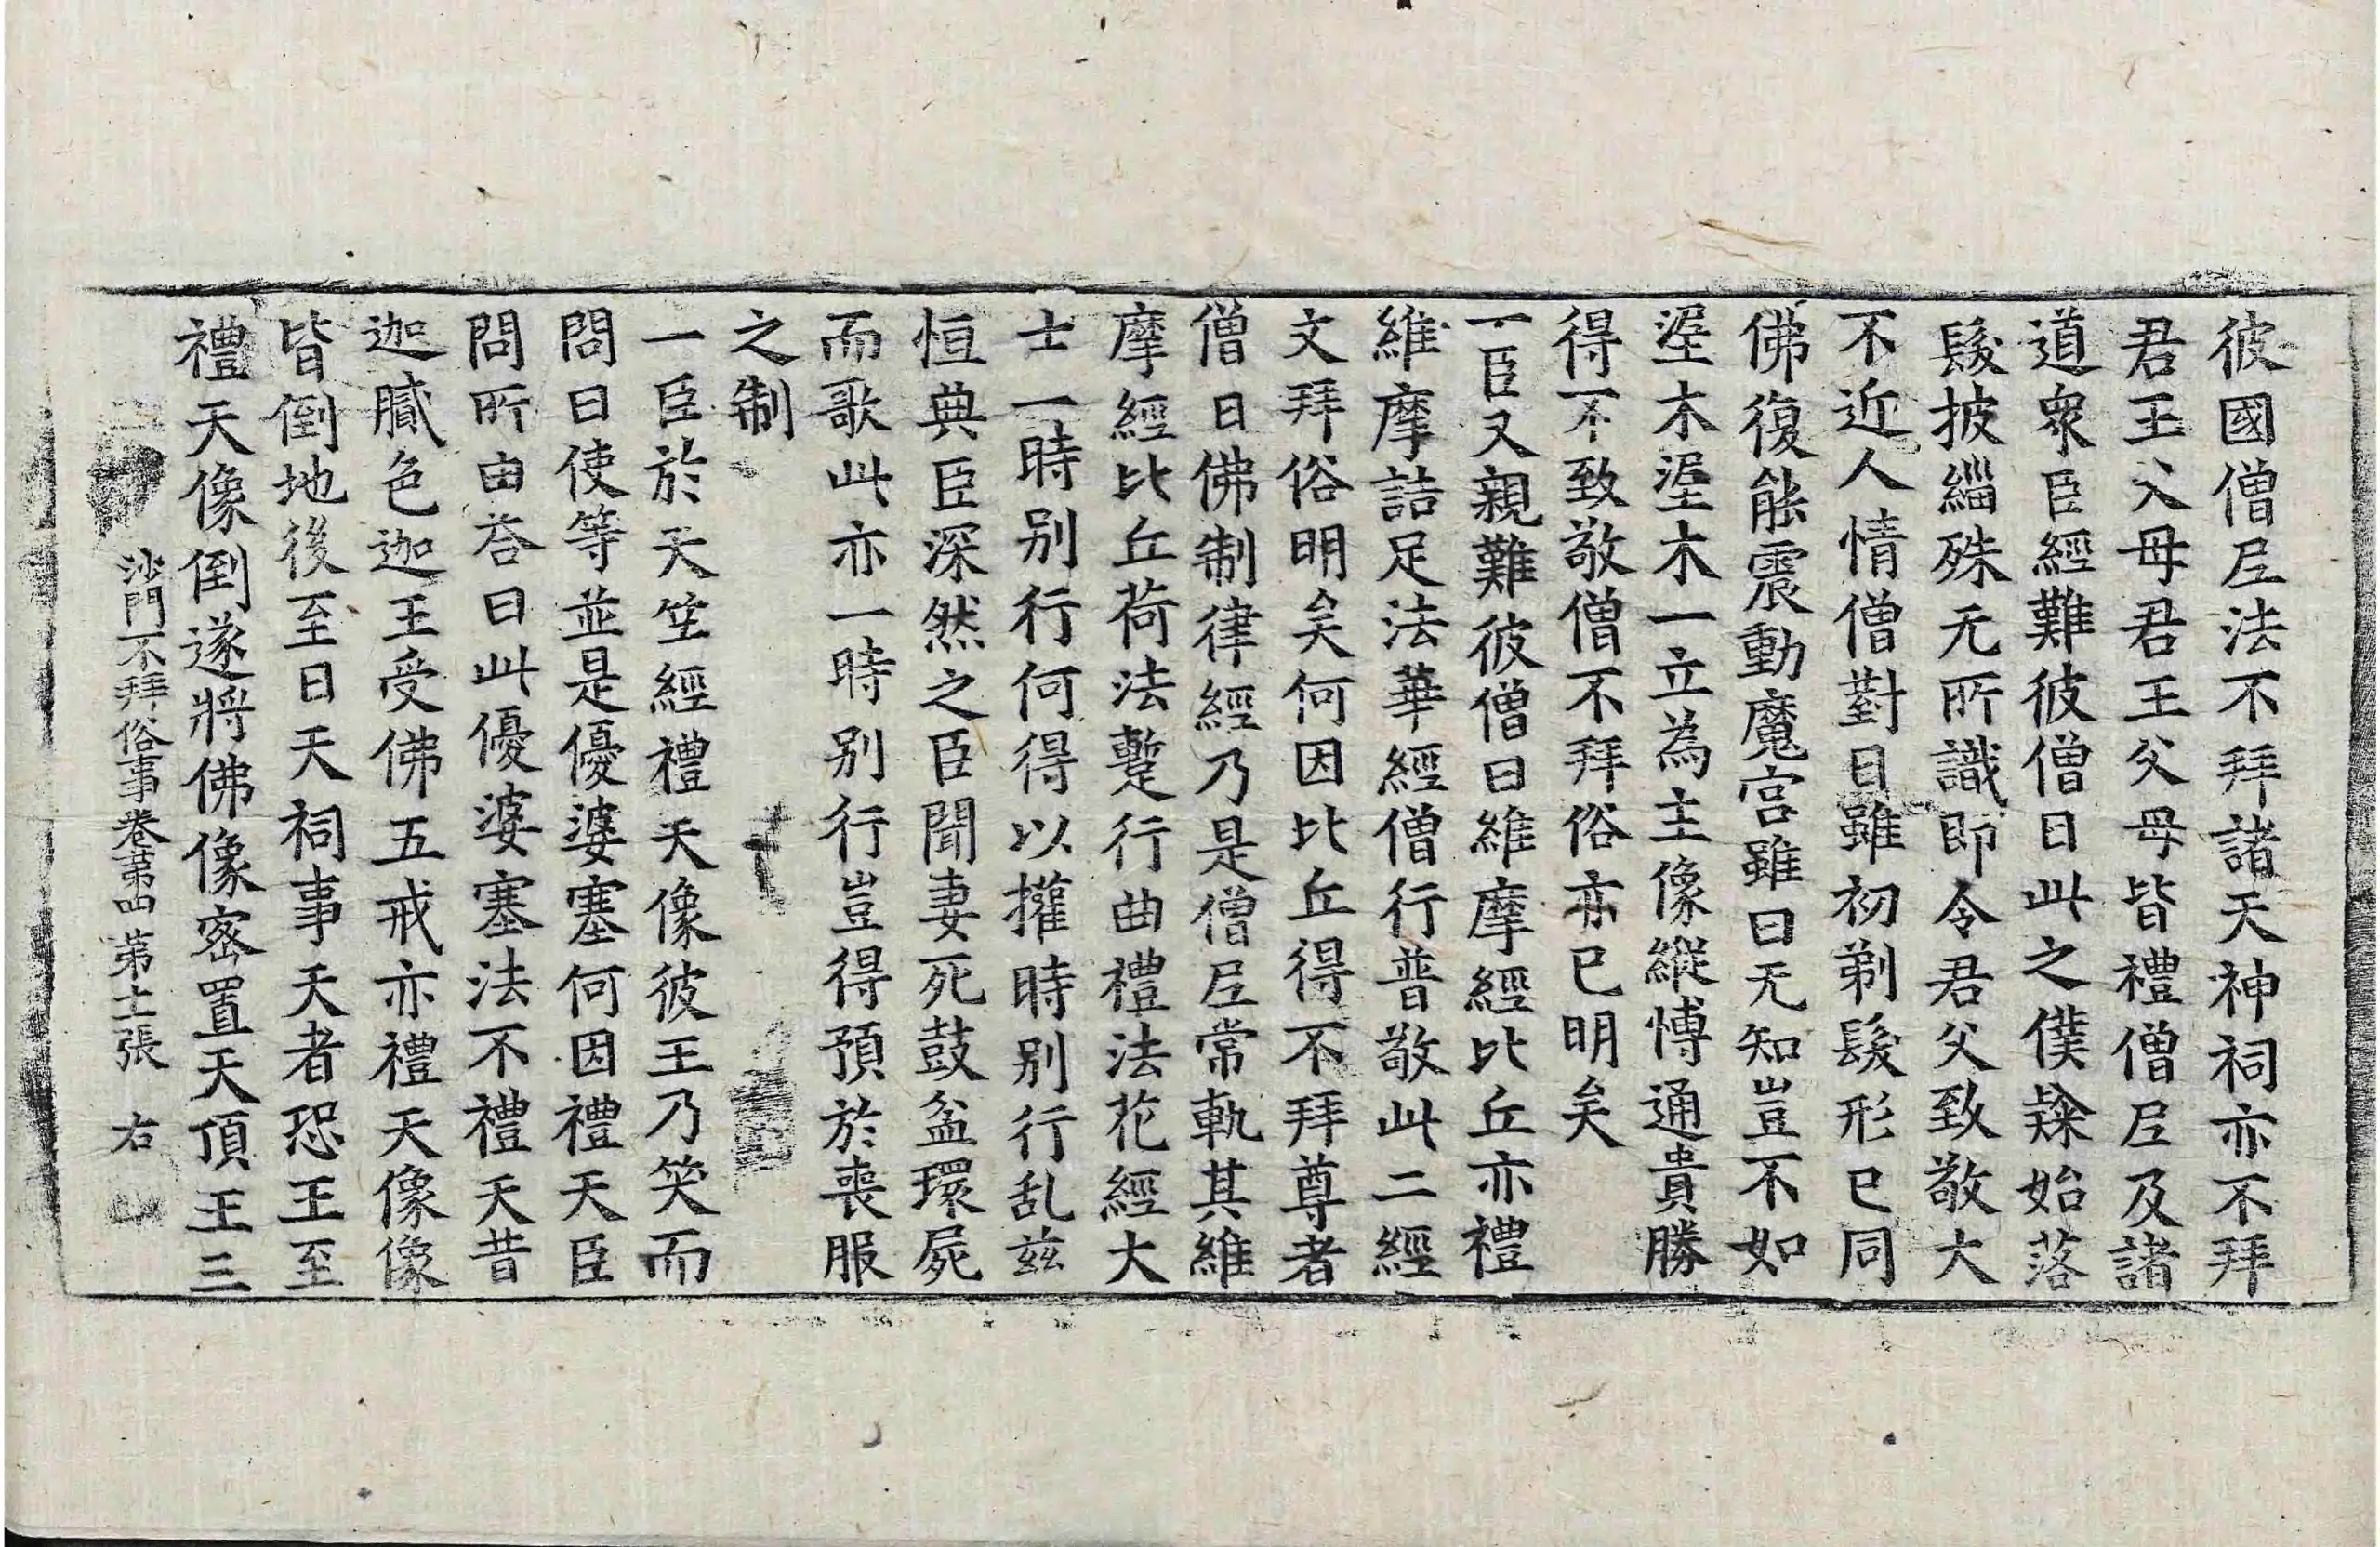 彼國僧尼法不拜諸天神祠亦不拜
君王父母君王父母皆禮僧尼及諸
道衆臣經難彼僧曰此之僕隸始落
髮披緇殊无所識即令君父致敬大
不近人情僧對曰雖初剃髮形已同
佛復能震動魔宫雖曰无知豈不如
埿木埿木一立為主像縱博通貴勝
得不致敬僧不拜俗亦已明矣
一臣又親難彼僧曰維摩經比丘亦禮
維摩詰足法華經僧行普敬此二經
文拜俗明矣何因比丘得不拜尊者
僧曰佛制律經乃是僧尼常軌其維
摩經比丘荷法蹔行曲禮法花經大
士一時別行何得以攉時別行乱茲
恒典臣深然之臣聞妻死鼓盆環屍
而歌此亦一時別行豈得預於喪服
之制
一臣於天竺經禮天像彼王乃笑而
問曰使等並是優婆塞何因禮天臣
問所由荅曰此優婆塞法不禮天昔
迦膩色迦王受佛五戒亦禮天像像
皆倒地後至日天祠事天者恐王至
禮天像倒遂將佛像密置天頂王三
沙門不拜俗事卷第四 第士張 右